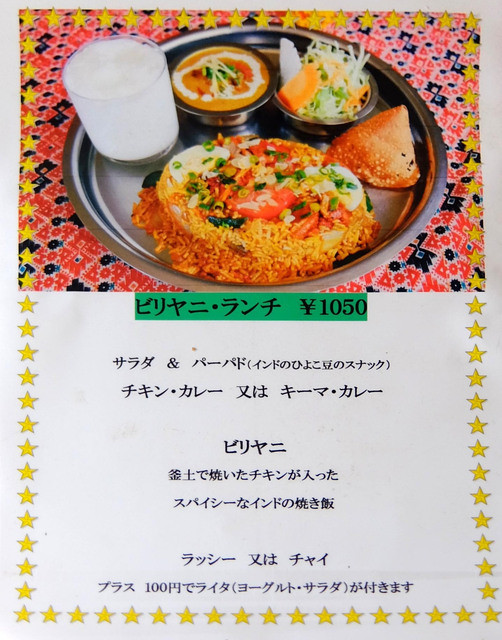 ビリヤニ・ランチ ￥1050
サラダ & パーパド(インドのひよこ豆のスナック)
チキン・カレー 又は キーマ・カレー
ビリヤニ
釜土で焼いたチキンが入った
スパイシーなインドの焼き飯
ラッシー 又は チャイ
プラス 100円でライタ(ヨーグルト・サラダ)が付きます